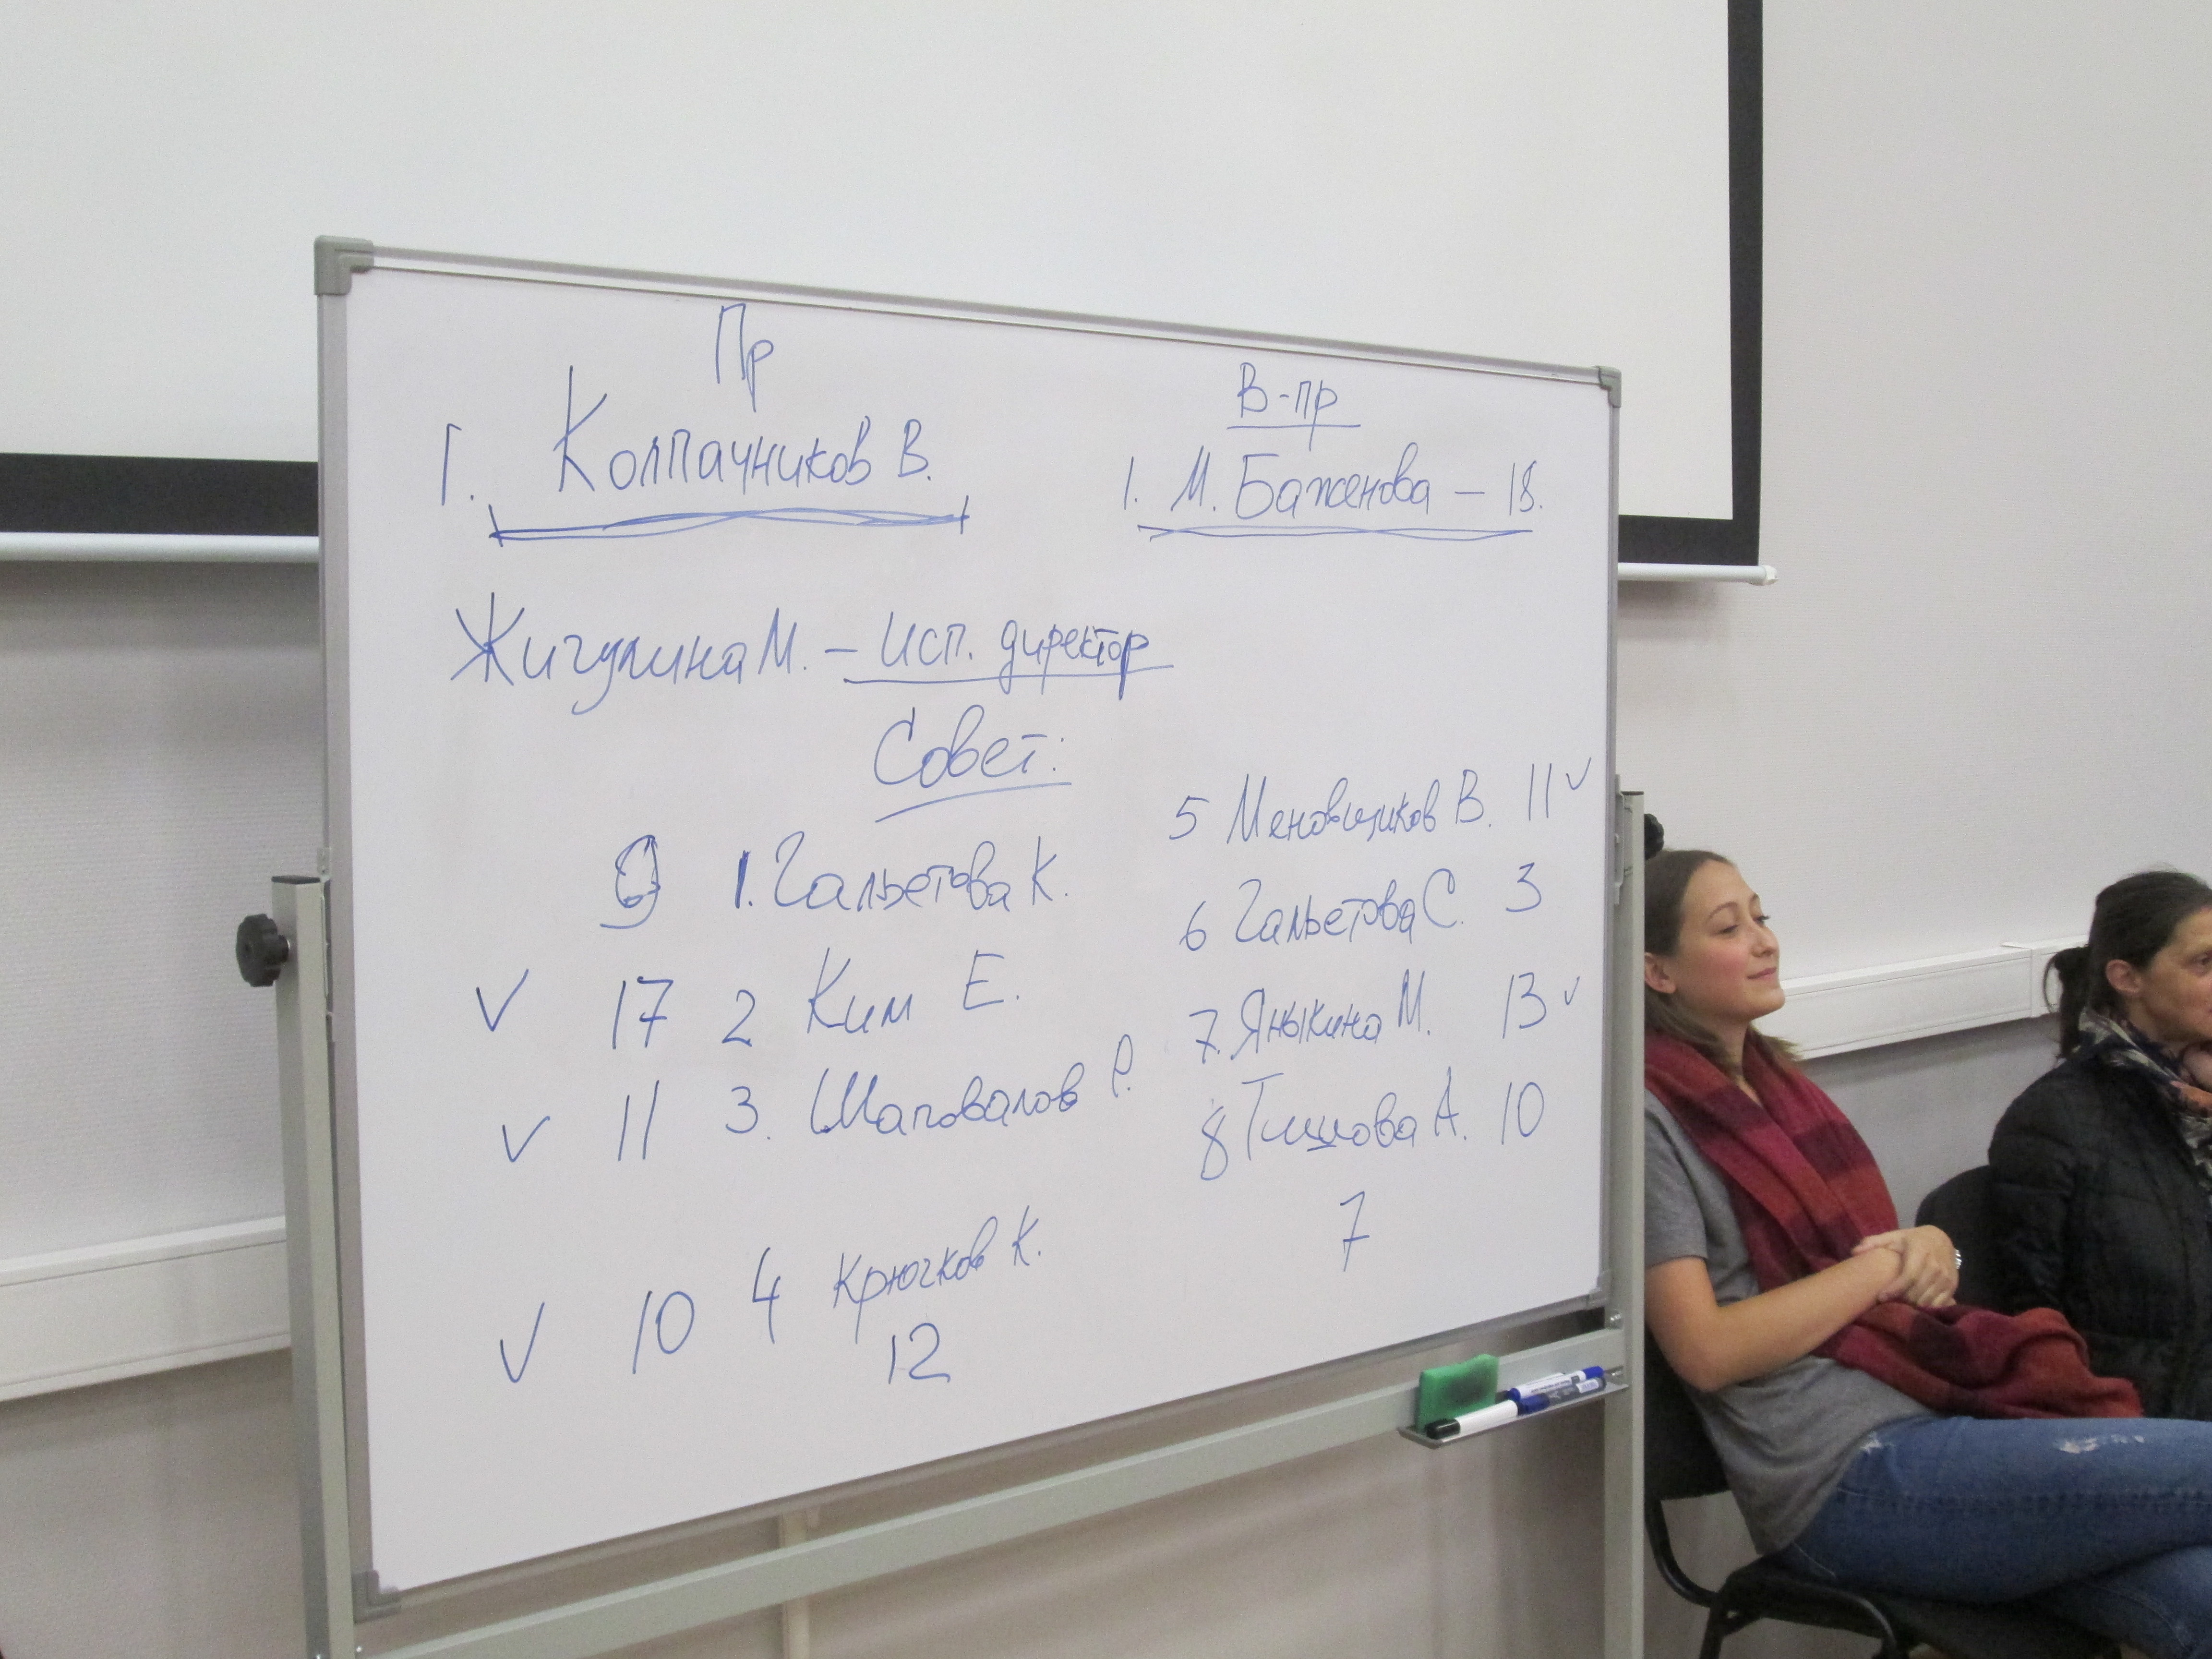 Пр
1. Колпачников В.
В-пр
1. М. Баженова – 18.
Жигулина М. – Исп. директор
Совет:
9 1. Гальетова К.
✓ 17 2 Ким Е.
✓ 11 3. Шаповалов Р.
✓ 10 4 Крючков К.
12
5 Меновщиков В. 11 ✓
6 Гальетова С. 3
7. Яныкина М. 13 ✓
8 Тишова А. 10
7